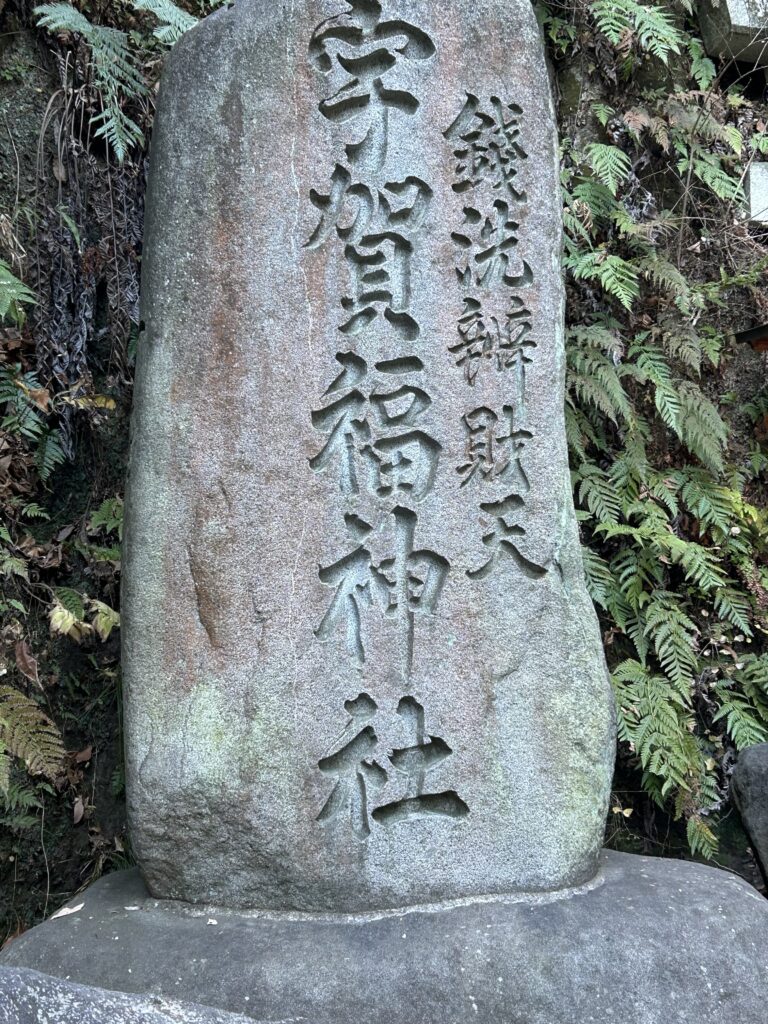 錢洗辨財天
宇賀福神社